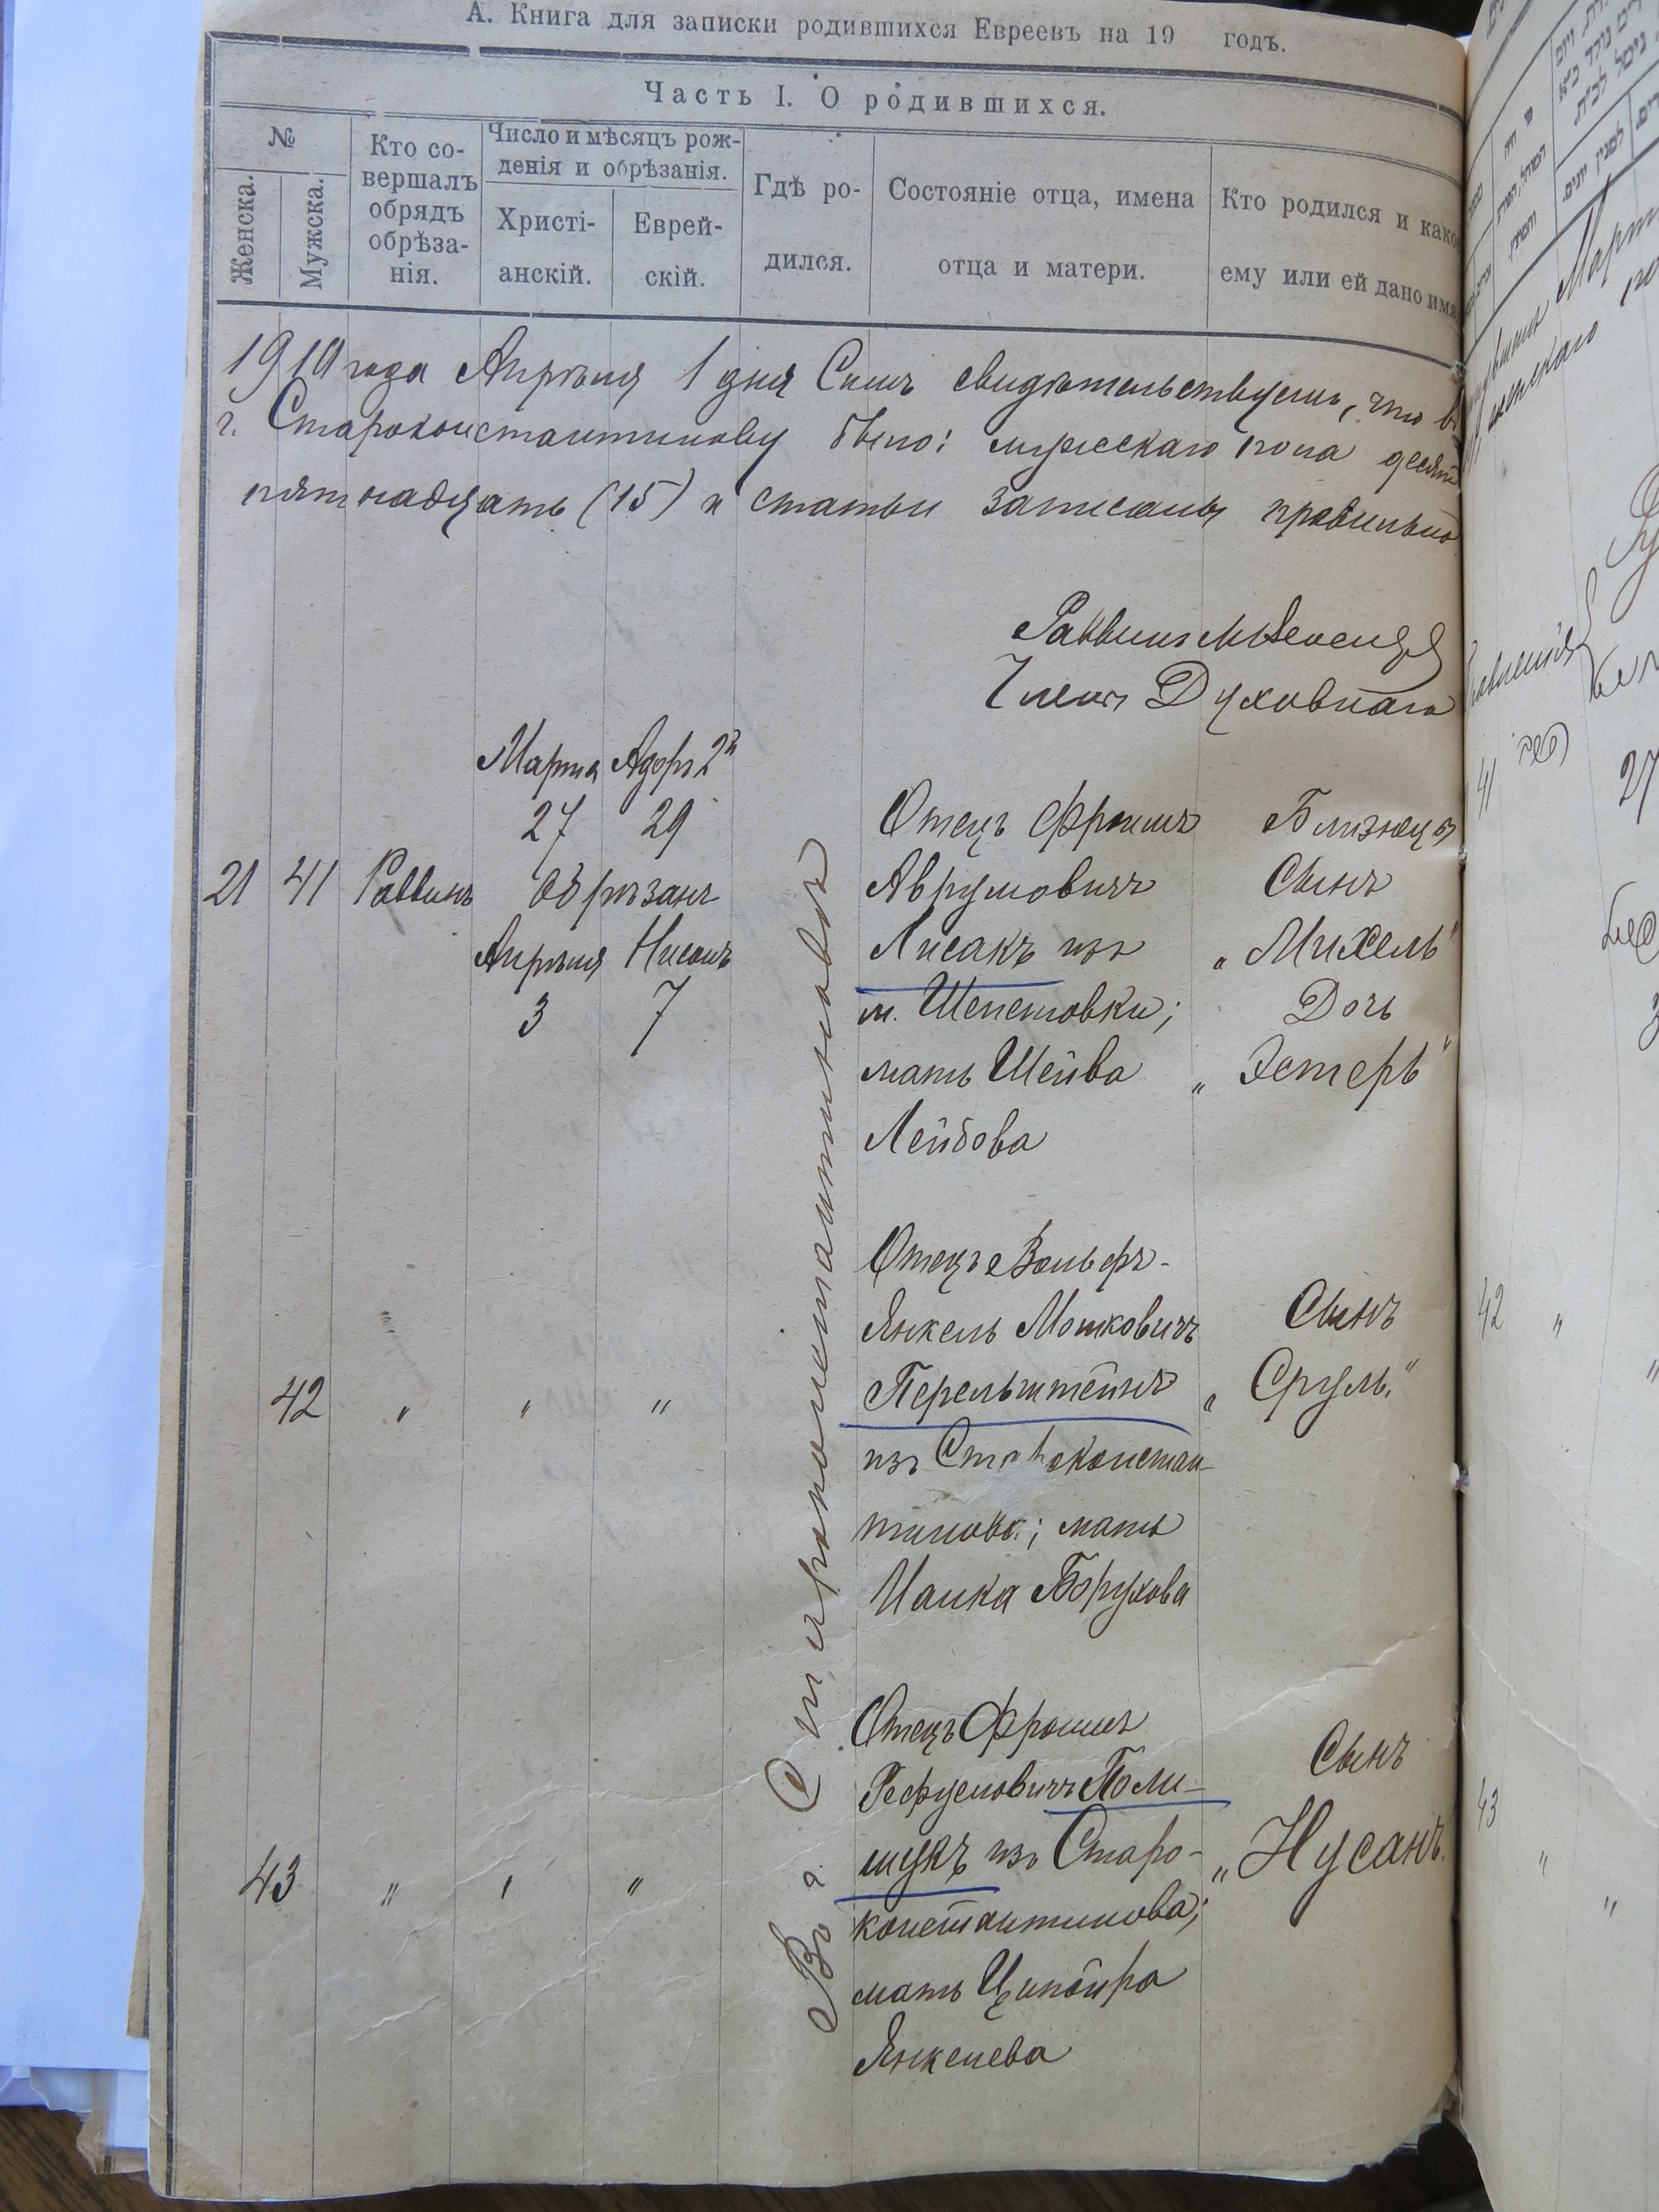 А. Книга для записки родившихся Евреевъ на 19 годъ.
Часть I. О родившихся.
№
Женска.
Мужска.
Кто со-
вершалъ
обрядъ
обрѣза-
нія.
Число и мѣсяцъ рож-
денія и обрѣзанія.
Христі-
анскій.
Еврей-
скій.
Гдѣ ро-
дился.
Состояніе отца, имена
отца и матери.
Кто родился и како
ему или ей дано имя
1910 года Апрѣля 1 дня Симъ свидѣтельствуемъ, что въ
г. Староконстантинову было: мужескаго пола десять
пятнадцать (15) и статьи записаны правильно
Раввинъ
Членъ Духовнаго
Марта Адоръ 2й
27 29
21 41 Раввинъ Обрѣзанъ
Апрѣля Нисанъ
3 7
Въ г. Староконстантиновѣ
Отецъ Фроимъ
Аврумовичъ
Лисакъ изъ
м. Шепетовки;
мать Шейва
Лейбова
Близнецы
Сынъ
„Михель"
Дочь
„Эстеръ"
42 " " "
Отецъ Вольфъ-
Янкель Мошковичъ
Перельштейнъ
изъ Староконстан-
тинова; мать
Ханка Борухова
Сынъ
„Сруль."
43 " " "
Отецъ Фроимъ
Рефуловичъ Поли-
щукъ изъ Старо-
константинова;
мать Ципойра
Янкелева
Сынъ
„Нусанъ.
Марта
41
27
42 "
43
" "